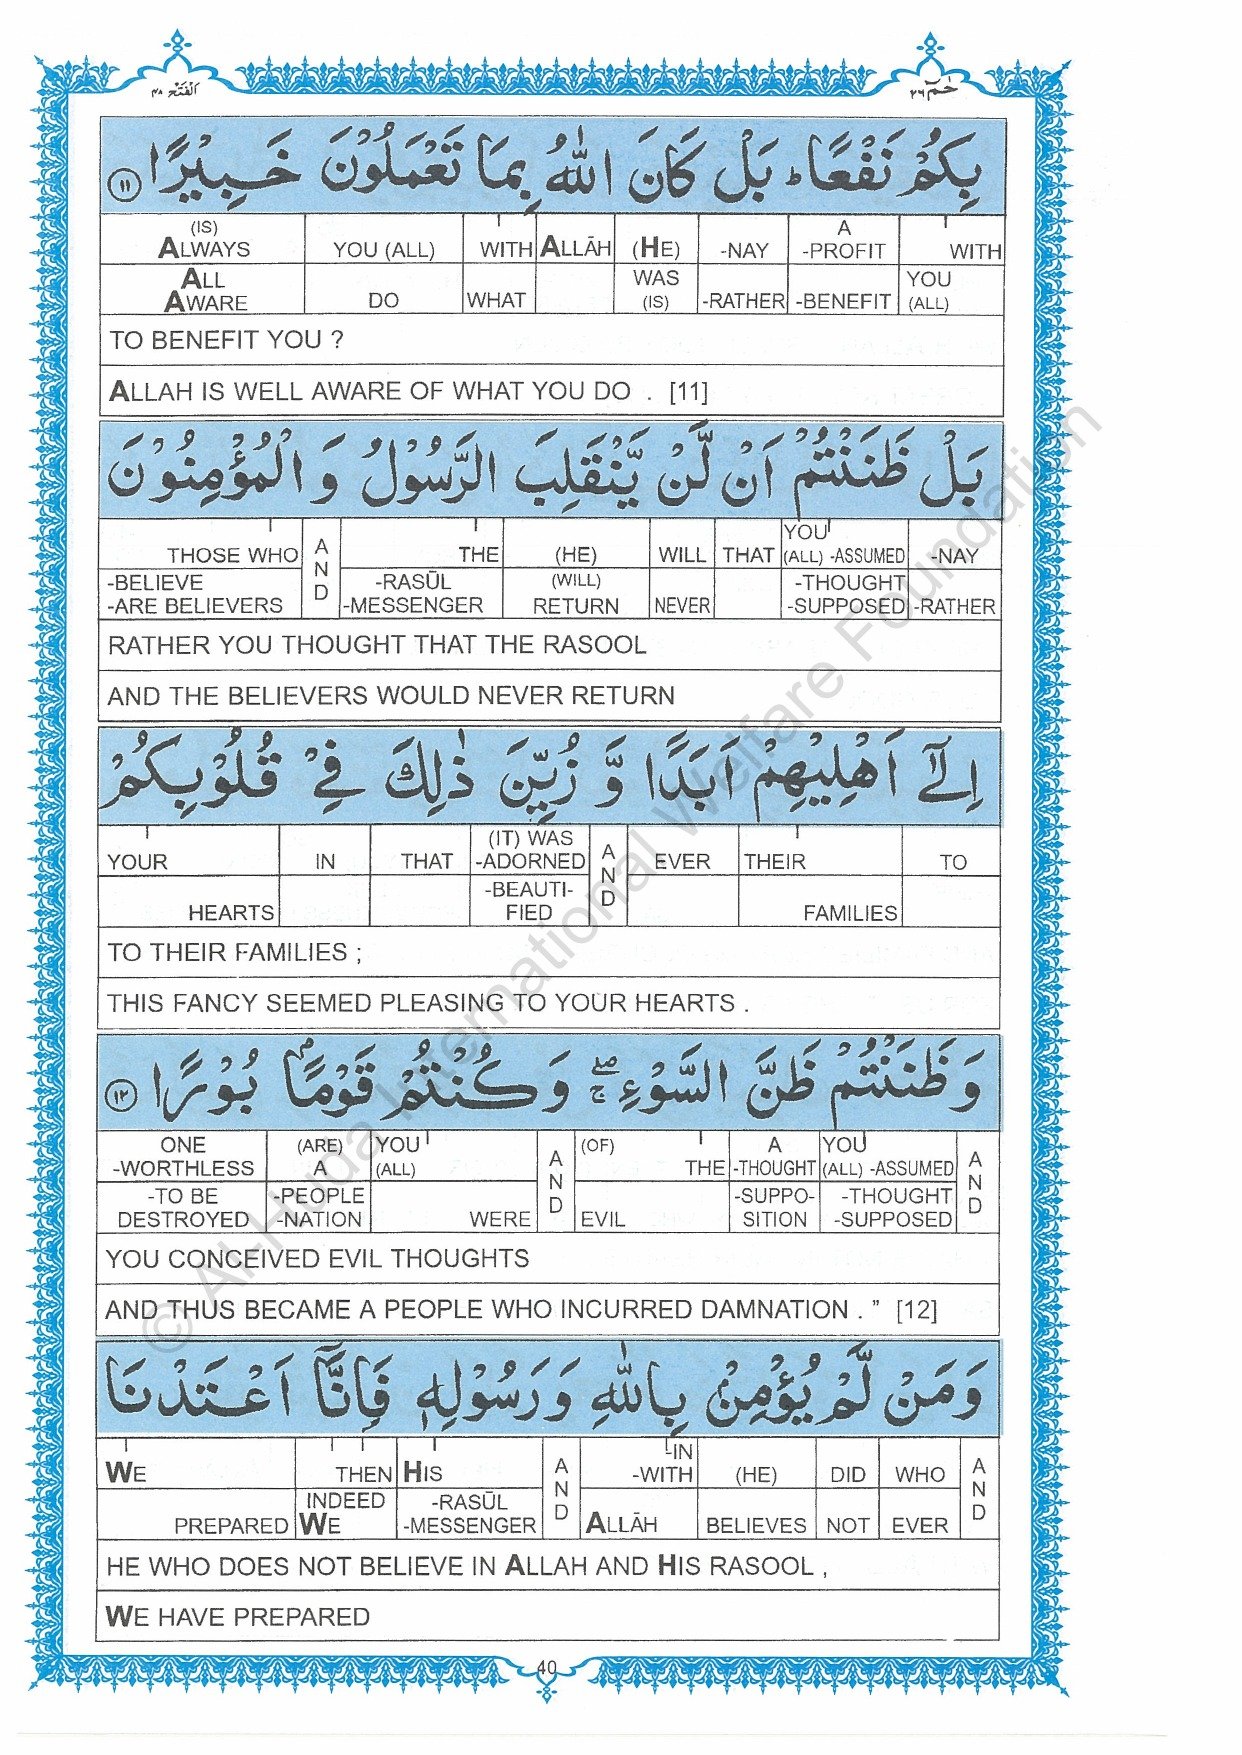 الفتح ٤٨
حٰمٓ ٢٦
بِكُمْ نَفْعًا ؕ بَلْ كَانَ اللّٰهُ بِمَا تَعْمَلُوْنَ خَبِيْرًا ﴿١١﴾
(IS) A WITH
ALWAYS YOU (ALL) WITH ALLĀH (HE) -NAY -PROFIT
ALL WAS YOU
AWARE DO WHAT (IS) -RATHER -BENEFIT (ALL)
TO BENEFIT YOU ?
ALLAH IS WELL AWARE OF WHAT YOU DO . [11]
بَلْ ظَنَنْتُمْ اَنْ لَّنْ يَّنْقَلِبَ الرَّسُوْلُ وَ الْمُؤْمِنُوْنَ
YOU
THOSE WHO AND THE (HE) WILL THAT (ALL) -ASSUMED -NAY
-BELIEVE -RASŪL (WILL) -THOUGHT
-ARE BELIEVERS -MESSENGER RETURN NEVER -SUPPOSED -RATHER
RATHER YOU THOUGHT THAT THE RASOOL
AND THE BELIEVERS WOULD NEVER RETURN
اِلٰۤى اَهْلِيْهِمْ اَبَدًا وَّ زُيِّنَ ذٰلِكَ فِيْ قُلُوْبِكُمْ
(IT) WAS
YOUR IN THAT -ADORNED AND EVER THEIR TO
-BEAUTI-
HEARTS FIED FAMILIES
TO THEIR FAMILIES ;
THIS FANCY SEEMED PLEASING TO YOUR HEARTS .
وَ ظَنَنْتُمْ ظَنَّ السَّوْءِ ۖۚ وَ كُنْتُمْ قَوْمًاۢ بُوْرًا ﴿١٢﴾
ONE (ARE) YOU (OF) A YOU
-WORTHLESS A (ALL) AND THE -THOUGHT (ALL) -ASSUMED AND
-TO BE -PEOPLE -SUPPO- -THOUGHT
DESTROYED -NATION WERE EVIL SITION -SUPPOSED
YOU CONCEIVED EVIL THOUGHTS
AND THUS BECAME A PEOPLE WHO INCURRED DAMNATION . ” [12]
وَ مَنْ لَّمْ يُؤْمِنْۢ بِاللّٰهِ وَ رَسُوْلِهٖ فَاِنَّاۤ اَعْتَدْنَا
-IN
WE THEN HIS AND -WITH (HE) DID WHO AND
INDEED -RASŪL
PREPARED WE -MESSENGER ALLĀH BELIEVES NOT EVER
HE WHO DOES NOT BELIEVE IN ALLAH AND HIS RASOOL ,
WE HAVE PREPARED
40
© Al-Huda International Welfare Foundation